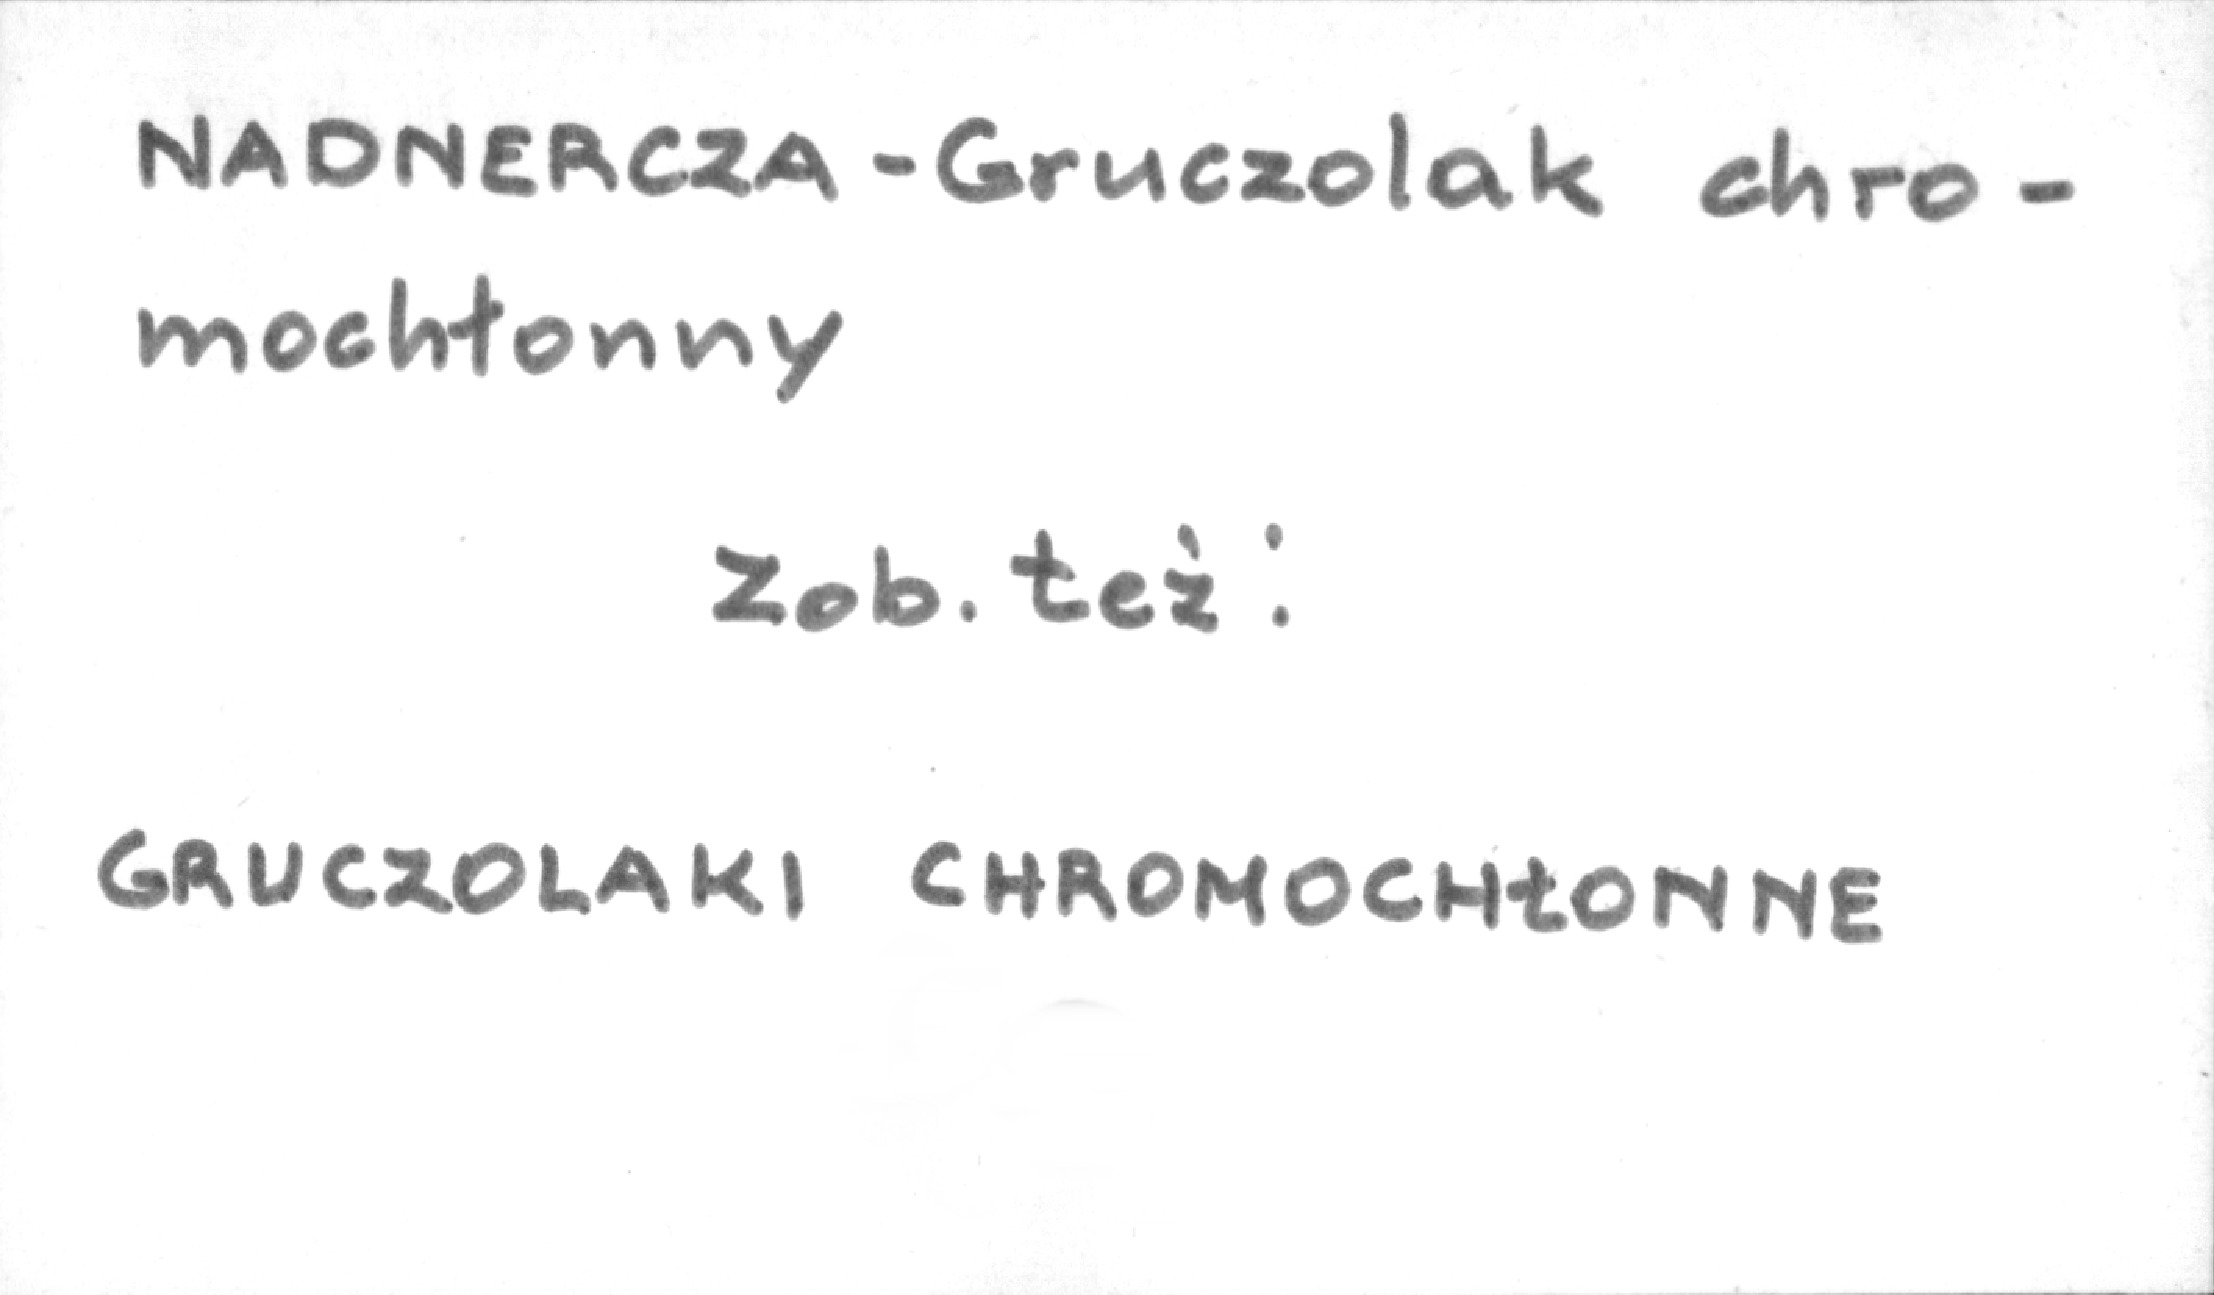 NADNERCZA - Gruczolak chro-
mochłonny
Zob. też:
GRUCZOLAKI CHROMOCHŁONNE